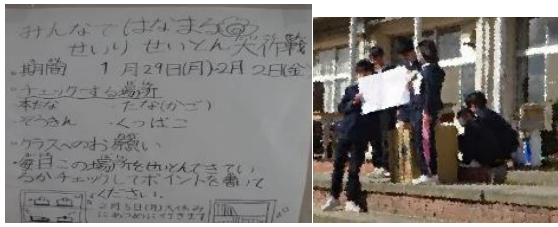 みんなで はなまる
せいり せいとん 大作戦
・期間 1月29日(月)-2月2日(金)
・チェックする場所
本だな ・たな(かご)
・ぞうきん ・くつばこ
・クラスへのお願い
・毎日この場所をせいとんできてい
るかチェックしてポイントを書いて
ください。
2月5日(月)大休み
にあつめに行きます